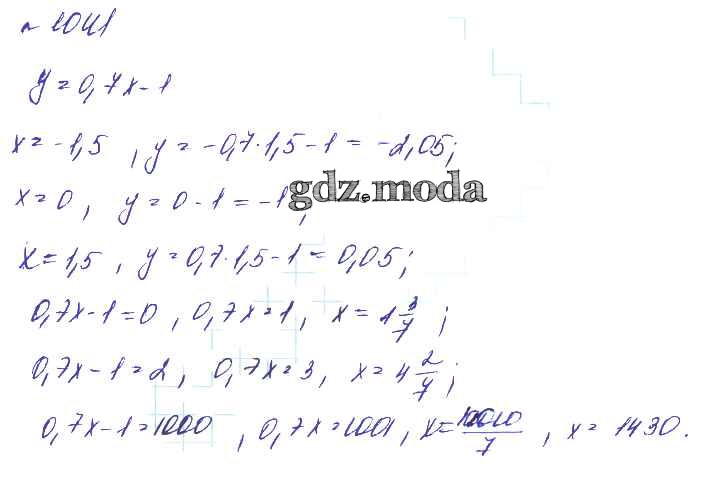 № 1041
y = 0,7x - 1
x = -1,5 , y = -0,7·1,5 - 1 = -2,05;
x = 0 , y = 0 - 1 = -1 ;
gdz.moda
x = 1,5 , y = 0,7·1,5 - 1 = 0,05;
0,7x - 1 = 0 , 0,7x = 1 , x = 1 3/7 ;
0,7x - 1 = 2 , 0,7x = 3 , x = 4 2/7 ;
0,7x - 1 = 1000 , 0,7x = 1001 , x = 10010/7 , x = 1430.